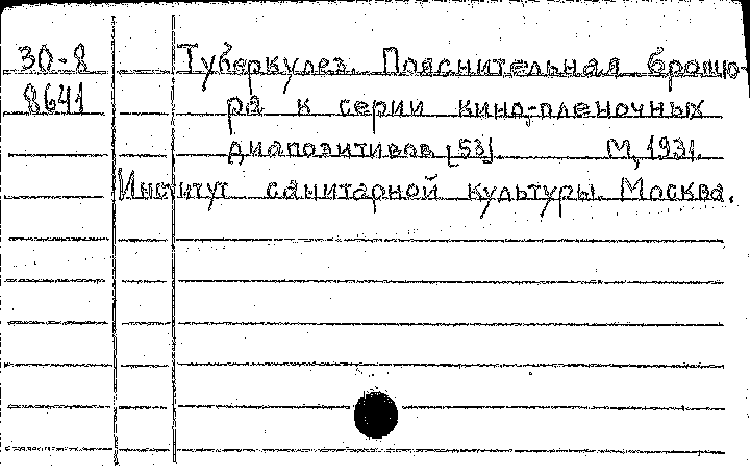 30-8 Туберкулез. Пояснительная брошю-
8641 ра к серии кино-пленочных
диапозитивов [53]. М, 1931.
Институт санитарной культуры. Москва.